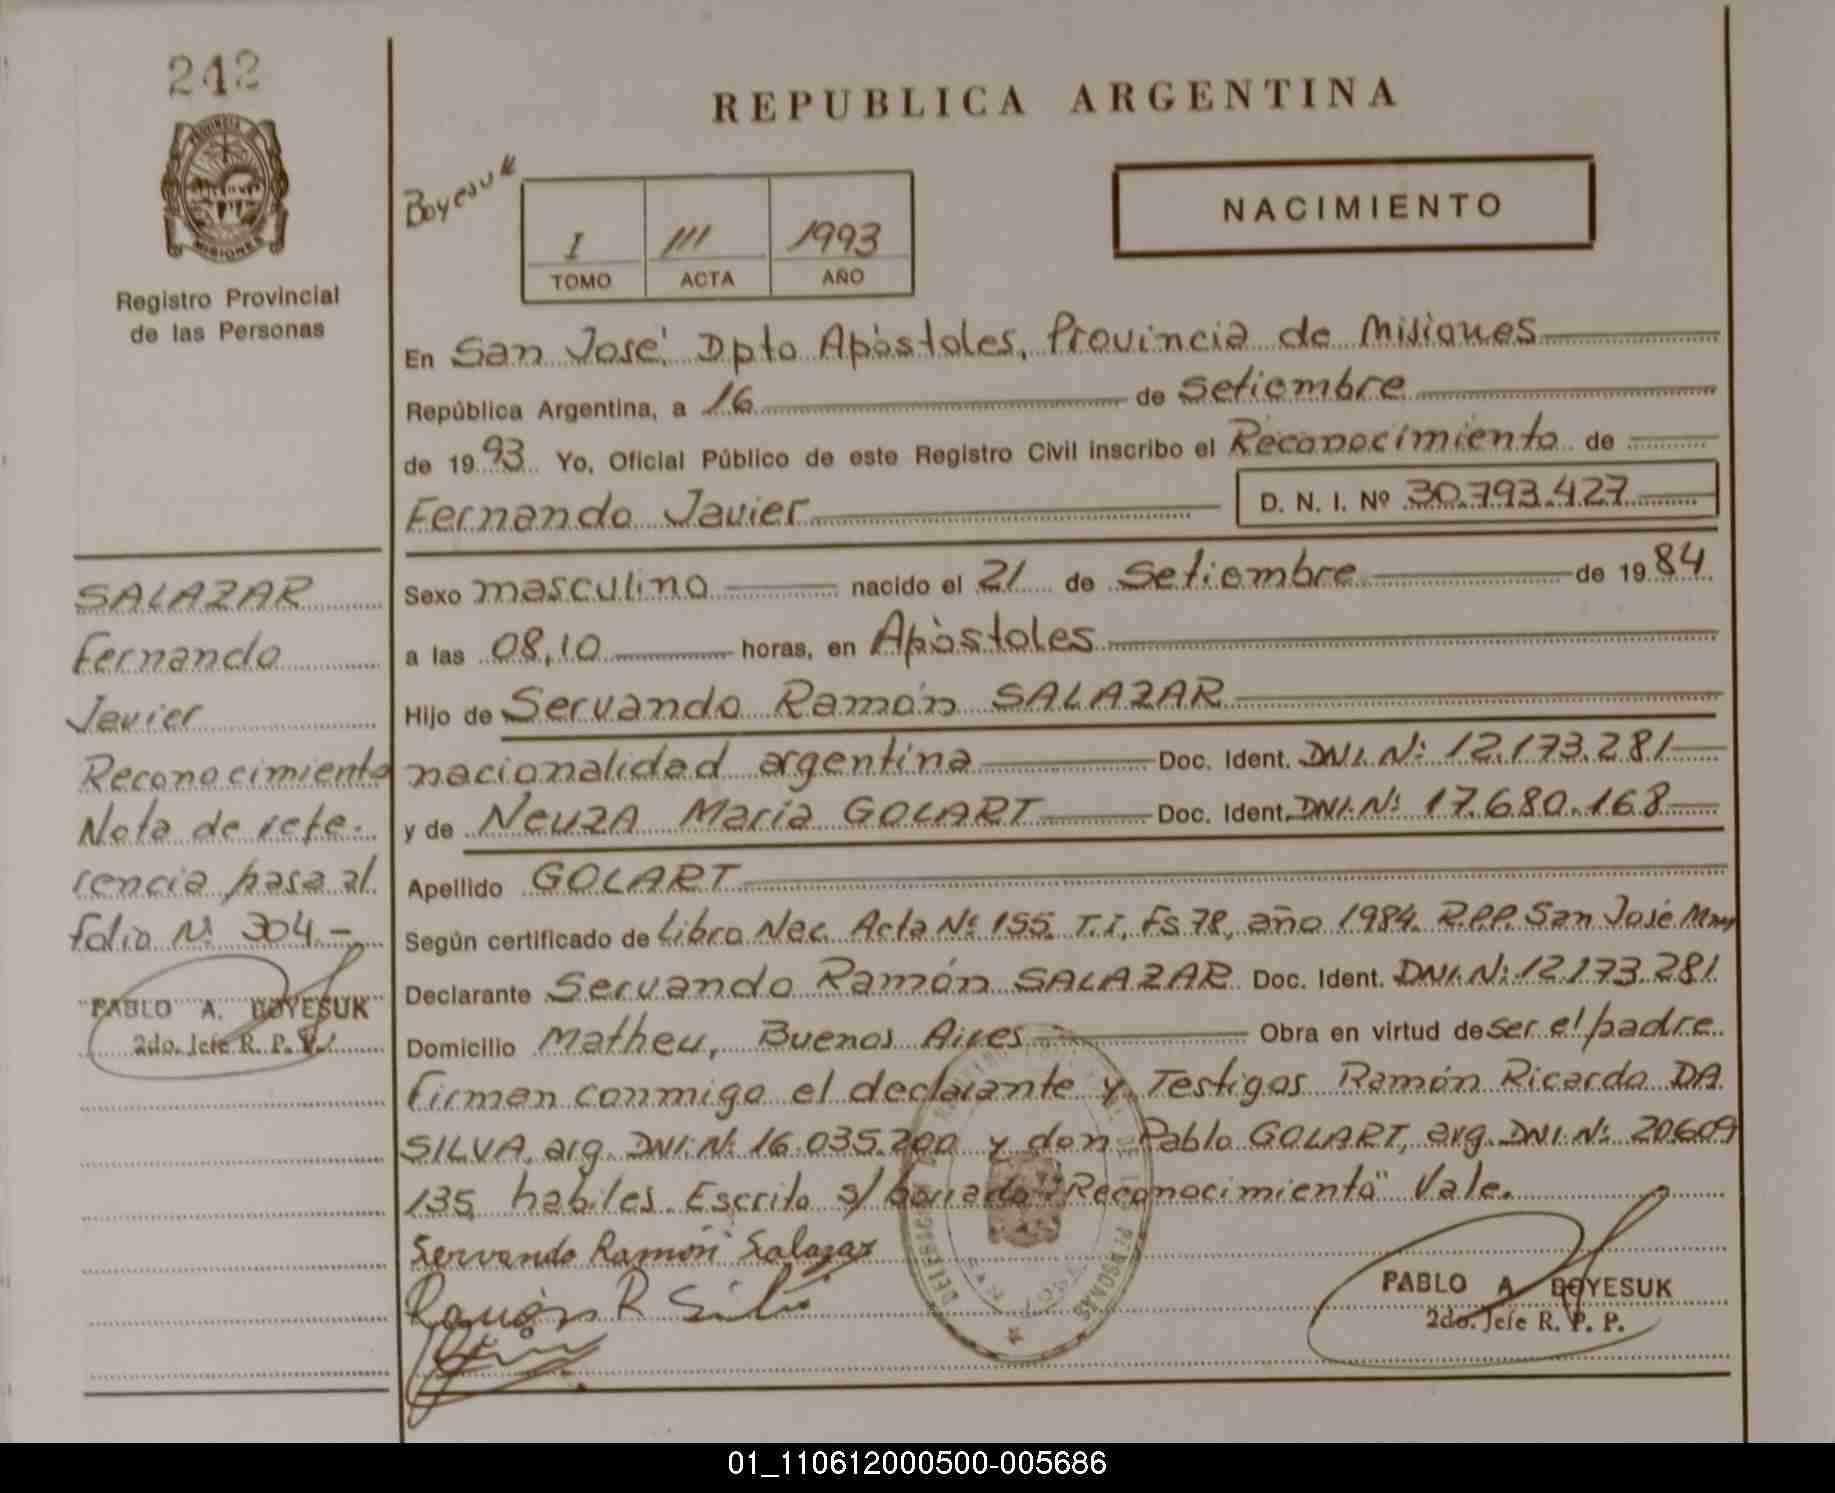 242
PROVINCIA DE
MISIONES
Registro Provincial
de las Personas
REPUBLICA ARGENTINA
Boyesuk
I 111 1993
TOMO ACTA AÑO
NACIMIENTO
En San José, Dpto Apóstoles, Provincia de Misiones
República Argentina, a 16 de Setiembre
de 1993 Yo, Oficial Público de este Registro Civil inscribo el Reconocimiento de
Fernando Javier D. N. I. Nº 30.793.427
Sexo masculino nacido el 21 de Setiembre de 1984
a las 08,10 horas, en Apóstoles
Hijo de Servando Ramón SALAZAR
nacionalidad argentina Doc. Ident. DNI. Nº 12.173.281
y de Neuza Maria GOLART Doc. Ident. DNI. Nº 17.680.168
Apellido GOLART
Según certificado de Libro Nac. Acta Nº 155. T.I, Fs 78, año 1984. R.P.P. San José Mnes
Declarante Servando Ramón SALAZAR Doc. Ident. DNI. Nº 12.173.281
Domicilio Matheu, Buenos Aires Obra en virtud de ser el padre
Firman conmigo el declarante y Testigos Ramón Ricardo DA
SILVA, arg. DNI. Nº 16.035.200 y don Pablo GOLART, arg. DNI. Nº 20609
135, habiles. Escrito s/ borrado "Reconocimiento" Vale.
Servando Ramón Salazar
Ramón R Silva
PABLO A. BOYESUK
2do. Jefe R. P. P.
SALAZAR
Fernando
Javier
Reconocimiento
Nota de refe-
rencia pasa al
folio Nº 304.-
PABLO A. BOYESUK
2do. Jefe R. P. P.
01_110612000500-005686